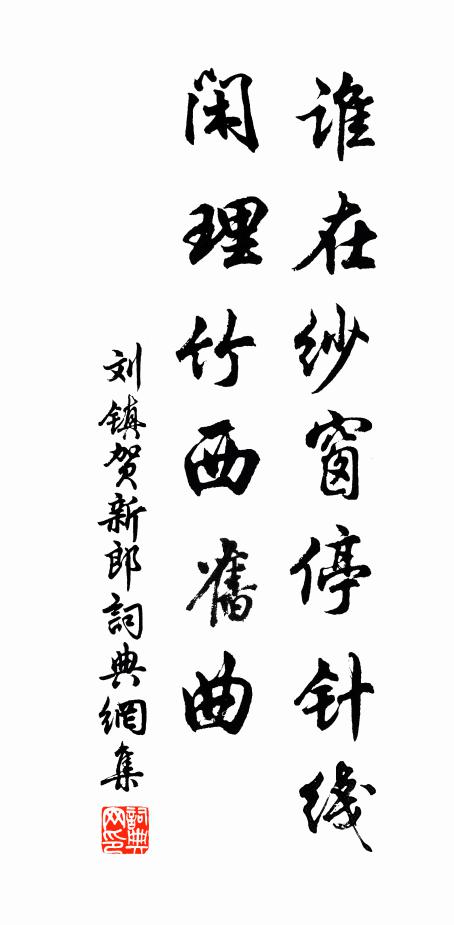 谁在纱窗停针线
闲理竹西舊曲
刘镇贺新郎詞典網集
詞典网印